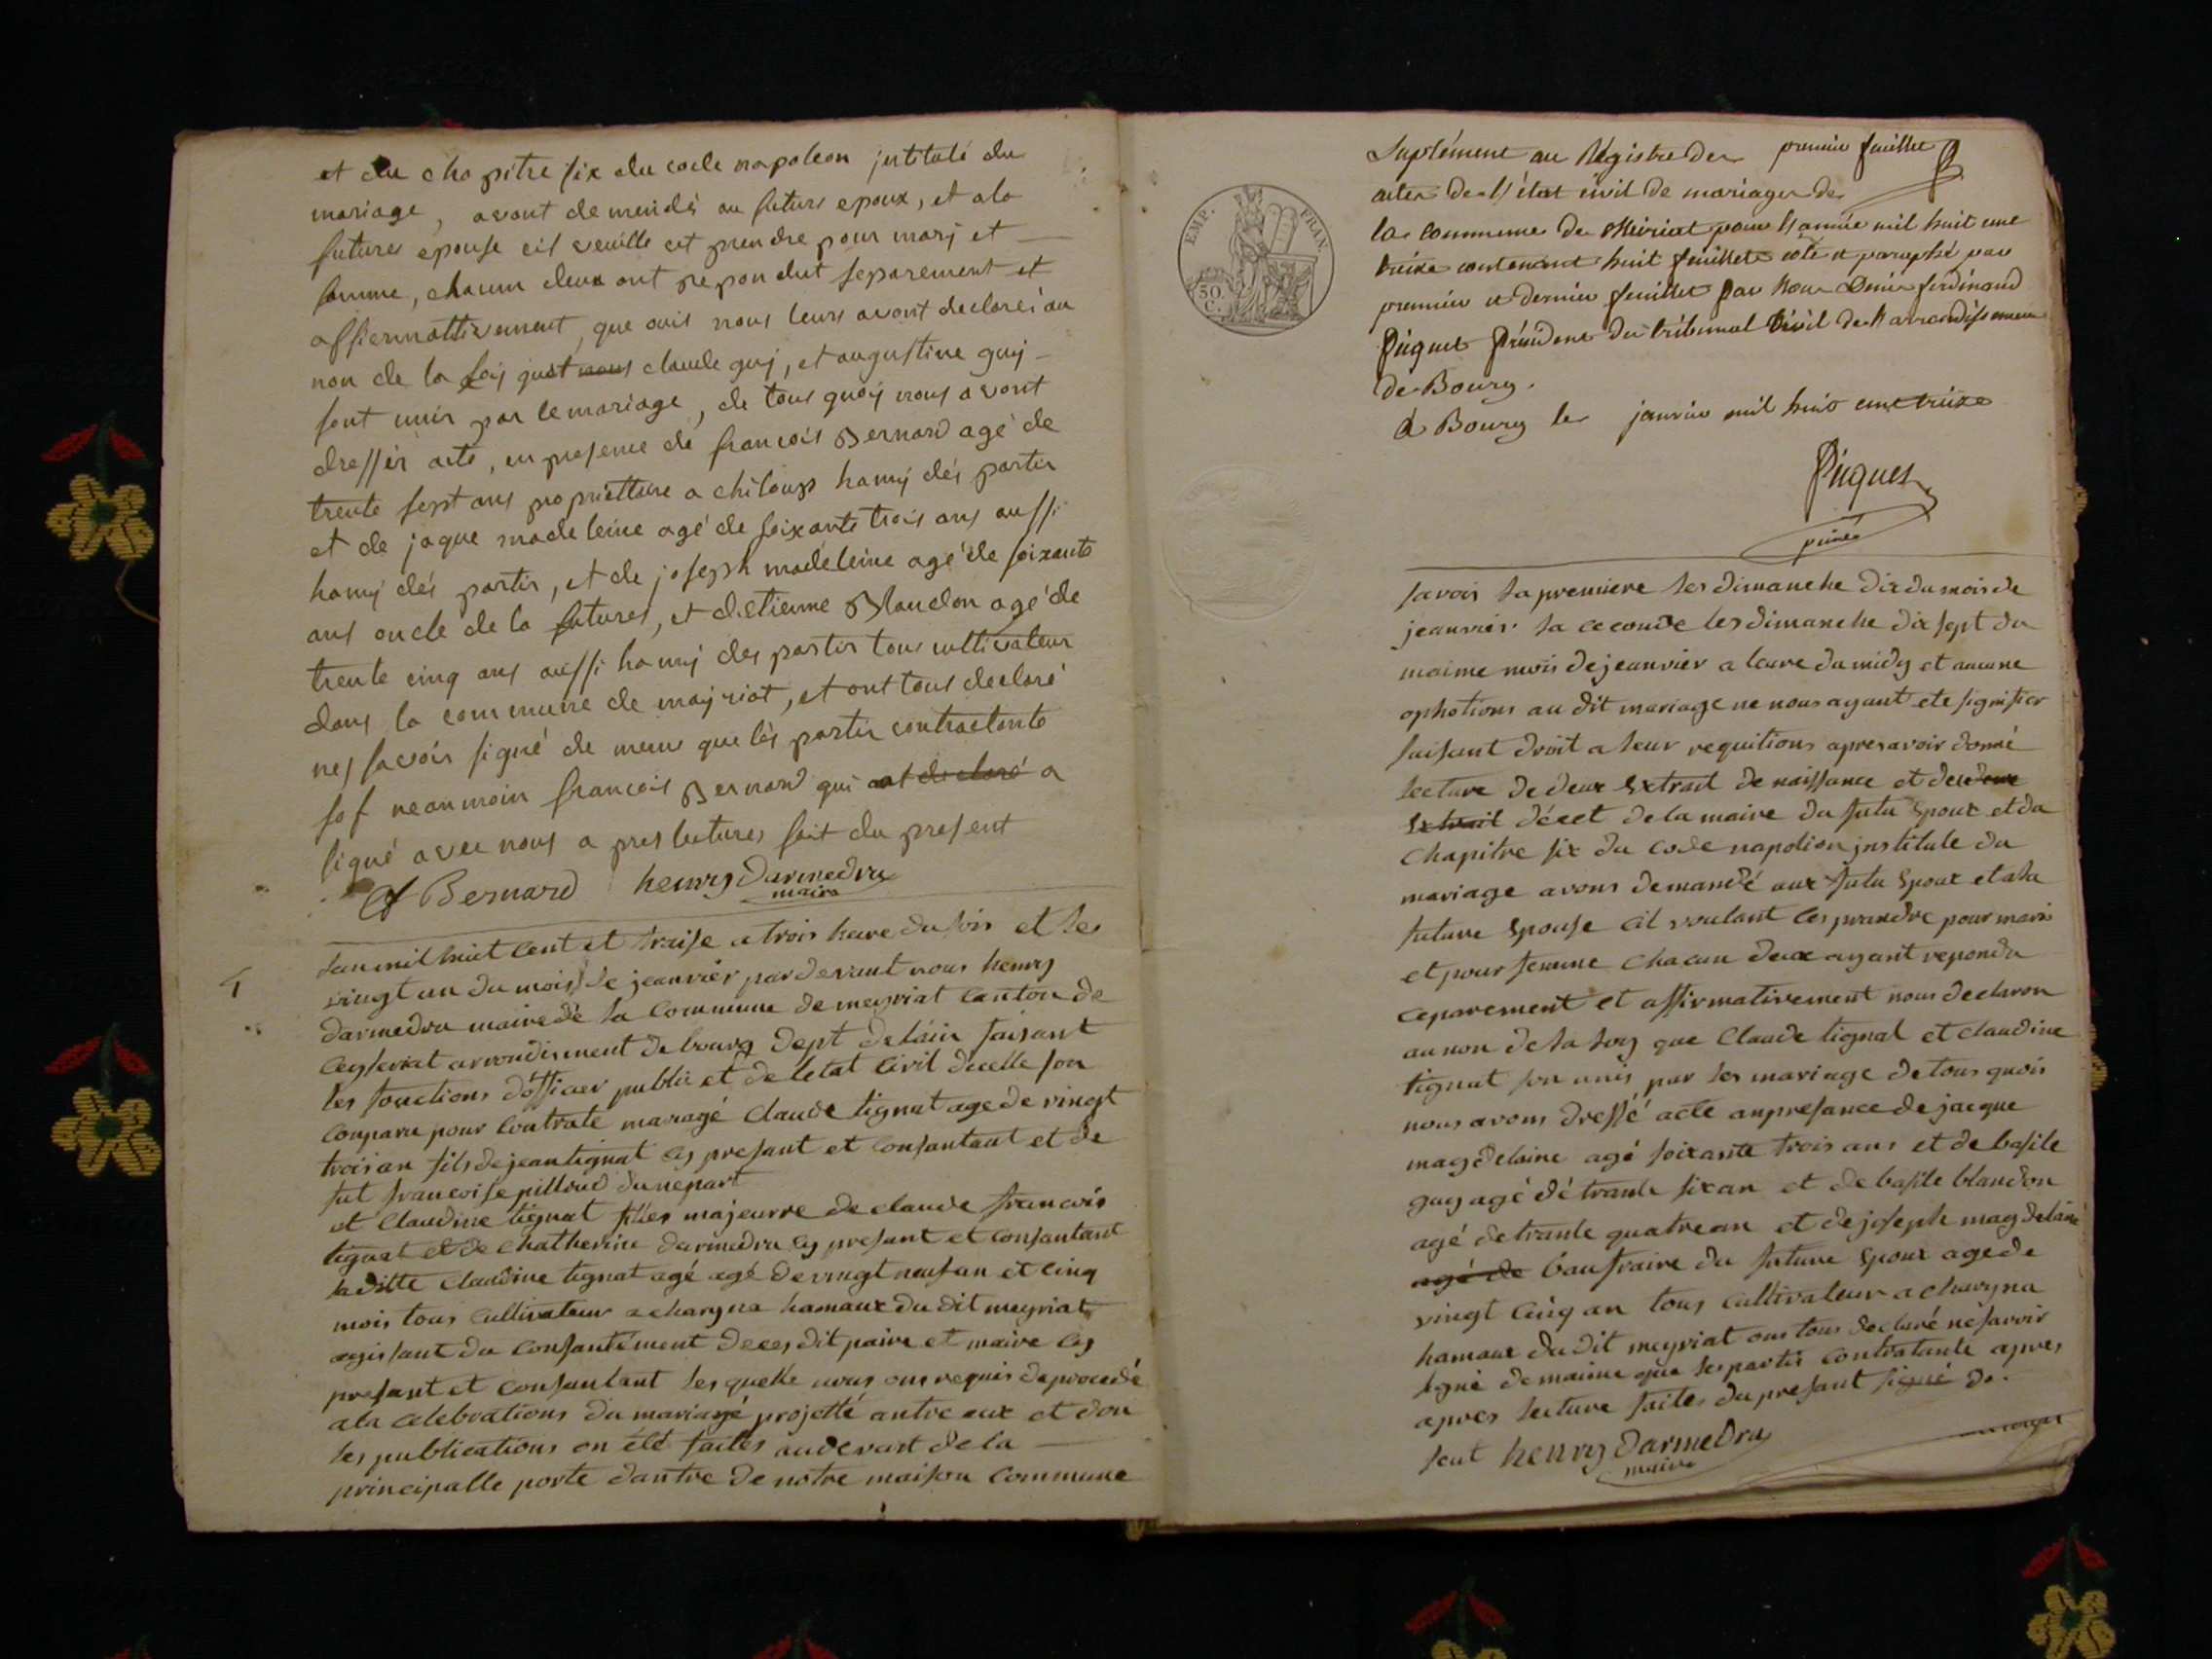 et du chapitre six du code napoleon jntitulé du
mariage, avont demendés au futurs epoux, et ala
futures epouse cil veuille cet prendre pour marj et
famme, chacun deux ont repondut separement et
affiermattivement, que avis nous leurs avont declaréi au
non de la loij quet nous claude guij, et augustine guij
sont unir par le mariage, de tous quoij nous avont
dressér acte, en presence de francois Bernard agé de
trente sept ans propriettare a chiloup hamij dés partir
et de jaque madeleine agé de soixante trois ans aussi
hamij dés partir, et de joseph madeleine agé de soixante
ans oncle de la futures, et detienne Blandon agé de
trente cinq ans aussi hamij des partir tous cultivateur
dans la commune de maijriat, et ont tous declaré
nes savoir signé de meme que lés partir contractante
sof neanmoin francois Bernard qui at declaré a
signé avec nous a pres lectures fait du present
f Bernard henry Darmedru
maire
4
Lan mil huit cent et traise a trois heure du soir et les
vingt un du mois de jeanvier pardevant nous henry
darmedru maire dé la Commune de meyriat Canton de
Ceyseriat arrondisment de bourg dept delain faisant
les fonctions dofficier public et de letat civil dicelle son
conparu pour Contrate maragé Claude tignat age de vingt
trois an fils de jean tignat cy presant et Consantant et de
fut francoise pilloud dunepart
et Claudine tignat filles majeurre de claude francois
tignat et de Chatherine darmedru cy presant et consantant
laditte Claudine tignat agé agé de vingt neuf an et cinq
mois tous cultivateur a charyna hamaux du dit meyriat
agissant du Consantément de ces dit paire et maire cy
presant et consantant les quelle nous ons requis da procedé
ala celebrations du mariagé projetté antre eux et don
les publications on été faites audevant de la
principalle porte dantre de notre maison Commune
Suplément au Régistre des premier feuillet
actes de l'état civil de mariages de
la commune de Meiriat pour l'année mil huit cent
treize contenant huit feuillets coté et paraphé par
premier et dernier feuillet par Nous Denis ferdinand
Piquet Président du tribunal Civil de l'arrondissement
de Bourg.
à Bourg le janvier mil huit cent treize
Piquet
savoir la premiere les dimanche dix du mois de
jeanvier la ceconde les dimanche dix sept du
maime mois de jeanvier a leure du midy et aucune
ophotions au dit mariage ne nous ayant ete signifier
faisant droit a leur requitions apres avoir donné
lecture de deux Extrait de naissance et de deux
Extrait décet de la maire du futu Epoux et du
Chapitre six du code napolion jnstitule du
mariage avons demandé aux futu Epoux et ala
future Epouse cil voulant ces prandre pour maris
et pour femme Chacun deux ayant repondu
ceparement et affirmativement nous declaron
au non de la loy que Claude tignat et claudine
tignat son unis par les mariage de tous quois
nous avons dressé acte anpresance de jacque
magdelaine agé soixante trois ans et de basile
guy agé dé trante six an et de basile blandon
agé de trante quatre an et de joseph magdelaine
agé de baufraire du future Epoux age de
vingt cinq an tous cultivateur a charyna
hamaux du dit meyriat ons tous declaré né savoir
signé demaime que les partis contratante apres
apres lecture faites du presant signé de.
seut henry Darmedru
maire